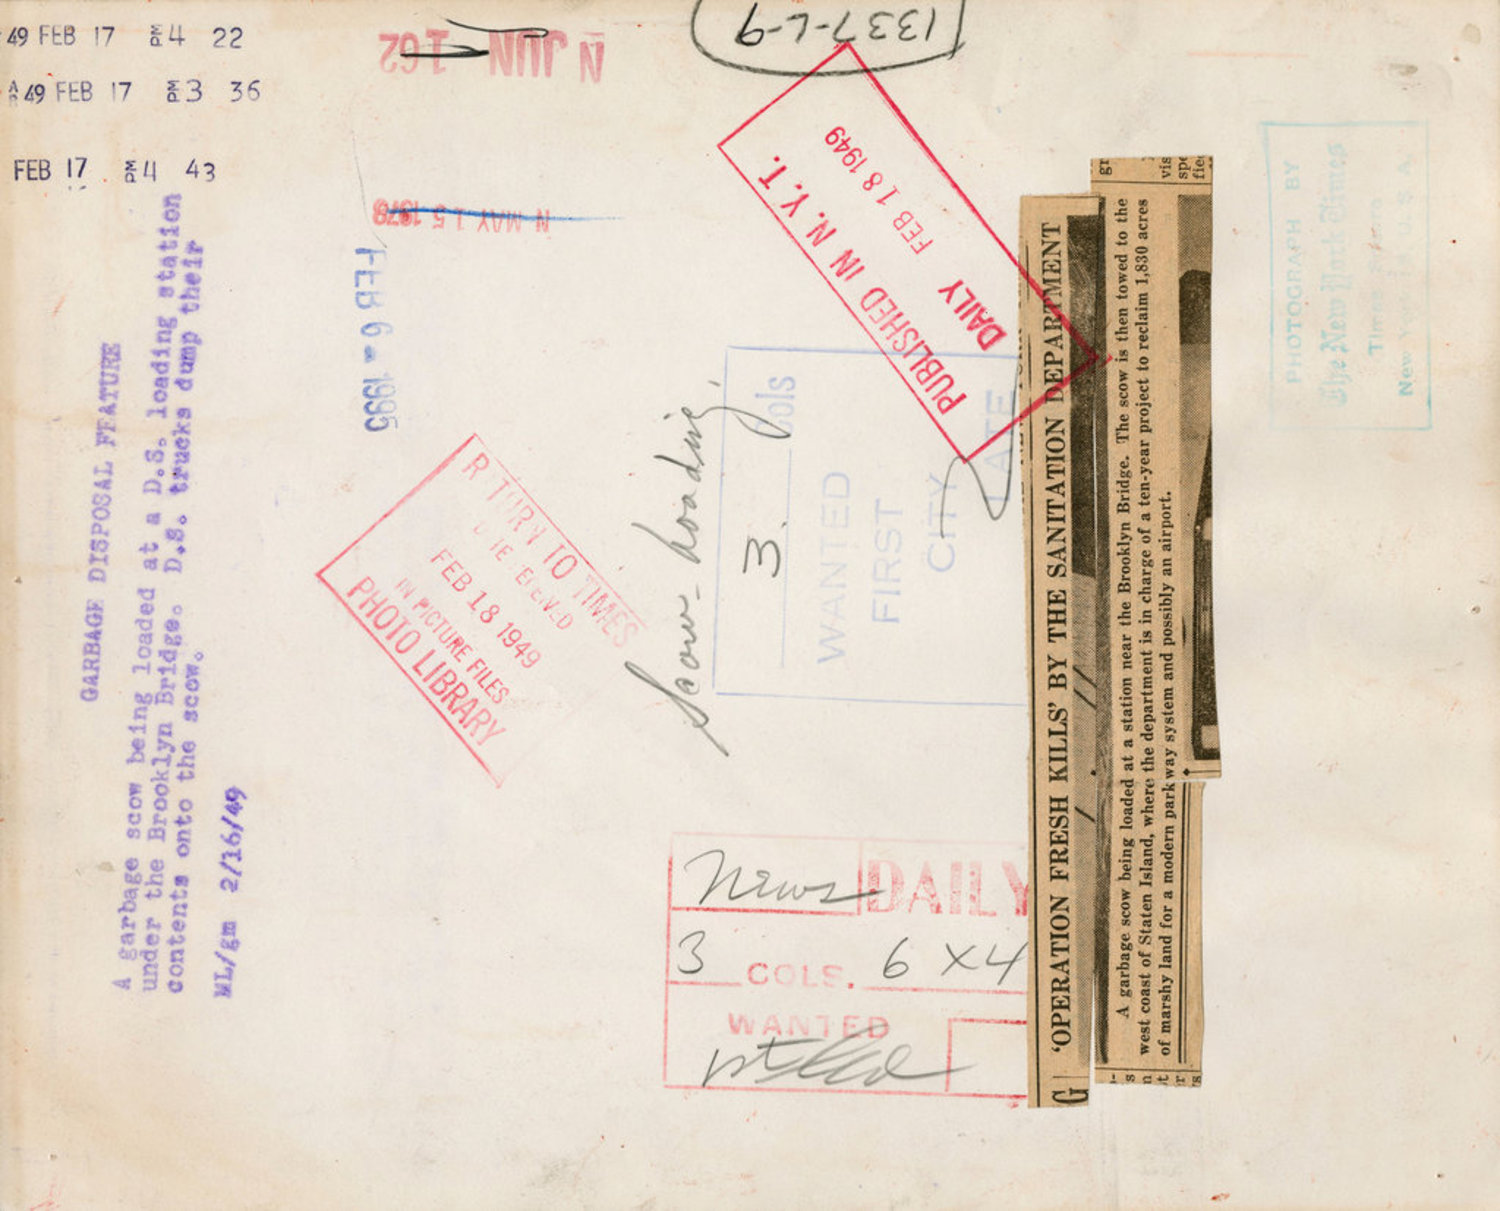 49 FEB 17 PM 4 22
49 FEB 17 PM 3 36
FEB 17 PM 4 43
GARBAGE DISPOSAL FEATURE
A garbage scow being loaded at a D.S. loading station
under the Brooklyn Bridge. D.S. trucks dump their
contents onto the scow.
ML/gm 2/16/49
N JUN 1 62
N MAY 15 1979
FEB 6 - 1995
1337-L-9
PUBLISHED IN N.Y.T.
FEB 18 1949
DAILY
R TURN TO TIMES
FEB 18 1949
IN PICTURE FILES
PHOTO LIBRARY
Scow-loading
3. cols
WANTED
FIRST
CITY
LATE
News DAILY
3 COLS. 6 x 4
WANTED
'OPERATION FRESH KILLS' BY THE SANITATION DEPARTMENT
A garbage scow being loaded at a station near the Brooklyn Bridge. The scow is then towed to the
west coast of Staten Island, where the department is in charge of a ten-year project to reclaim 1,830 acres
of marshy land for a modern parkway system and possibly an airport.
G
gr
vis
spe
fie
PHOTOGRAPH BY
The New York Times
Times
New York U.S.A.